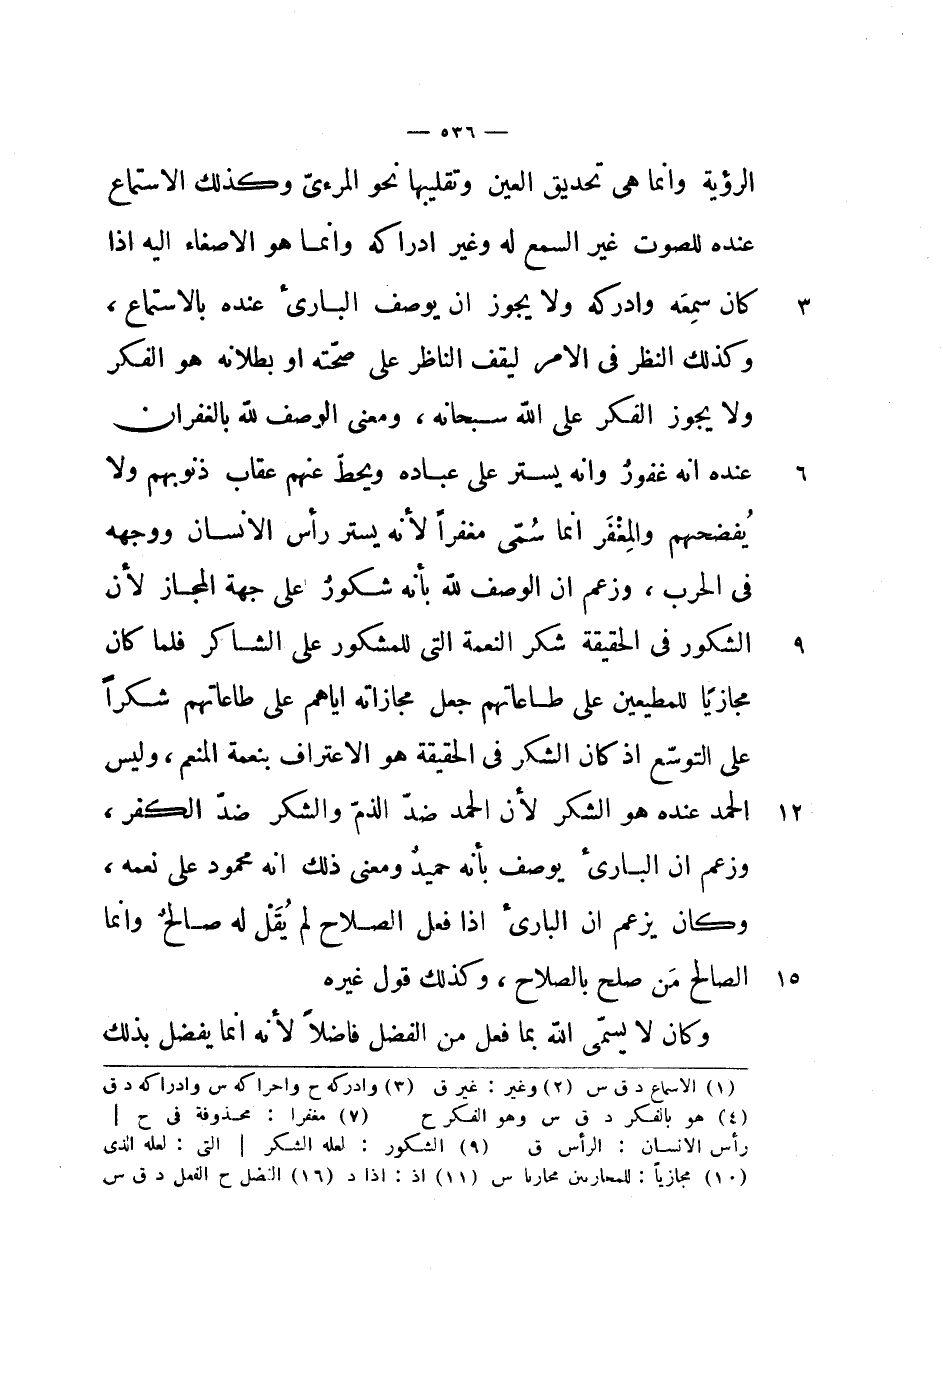 — ٥٣٦ —
الرؤية وانما هى تحديق العين وتقليبها نحو المرءىّ وكذلك الاستماع
عنده للصوت غير السمع له وغير ادراكه وانما هو الاصغاء اليه اذا
٣ كان سمِعَه وادركه ولا يجوز ان يوصف البارئ عنده بالاستماع ،
وكذلك النظر فى الامر ليقف الناظر على صحّته او بطلانه هو الفكر
ولا يجوز الفكر على الله سبحانه ، ومعنى الوصف لله بالغفران
٦ عنده انه غفورٌ وانه يستر على عباده ويحطّ عنهم عقاب ذنوبهم ولا
يُفضحهم والمِغْفَر انما سُمّى مغفراً لأنه يستر رأس الانسان ووجهه
فى الحرب ، وزعم ان الوصف لله بأنه شكورٌ على جهة المجاز لأن
٩ الشكور فى الحقيقة شكر النعمة التى للمشكور على الشاكر فلما كان
مجازيًا للمطيعين على طاعاتهم جعل مجازاته اياهم على طاعاتهم شكراً
على التوسّع اذ كان الشكر فى الحقيقة هو الاعتراف بنعمة المنعم ، وليس
١٢ الحمد عنده هو الشكر لأن الحمد ضدّ الذمّ والشكر ضدّ الكفر ،
وزعم ان البارئ يوصف بأنه حميدٌ ومعنى ذلك انه محمود على نعمه ،
وكان يزعم ان البارئ اذا فعل الصلاح لم يُقَلْ له صالحٌ وانما
١٥ الصالح مَن صلح بالصلاح ، وكذلك قول غيره
وكان لا يسمّى الله بما فعل من الفضل فاضلاً لأنه انما يفضل بذلك
(١) الاسماع د ق س (٢) وغير : غير ق (٣) وادركه ح واحراكه س وادراكه د ق
(٤) هو بالفكر د ق س وهو الفكر ح (٧) مغفرا : محذوفة فى ح |
رأس الانسان : الرأس ق (٩) الشكور : لعله الشكر | التى : لعله الذى
(١٠) مجازياً : للمحاربين محاربا س (١١) اذ : اذا د (١٦) الفضل ح الفعل د ق س